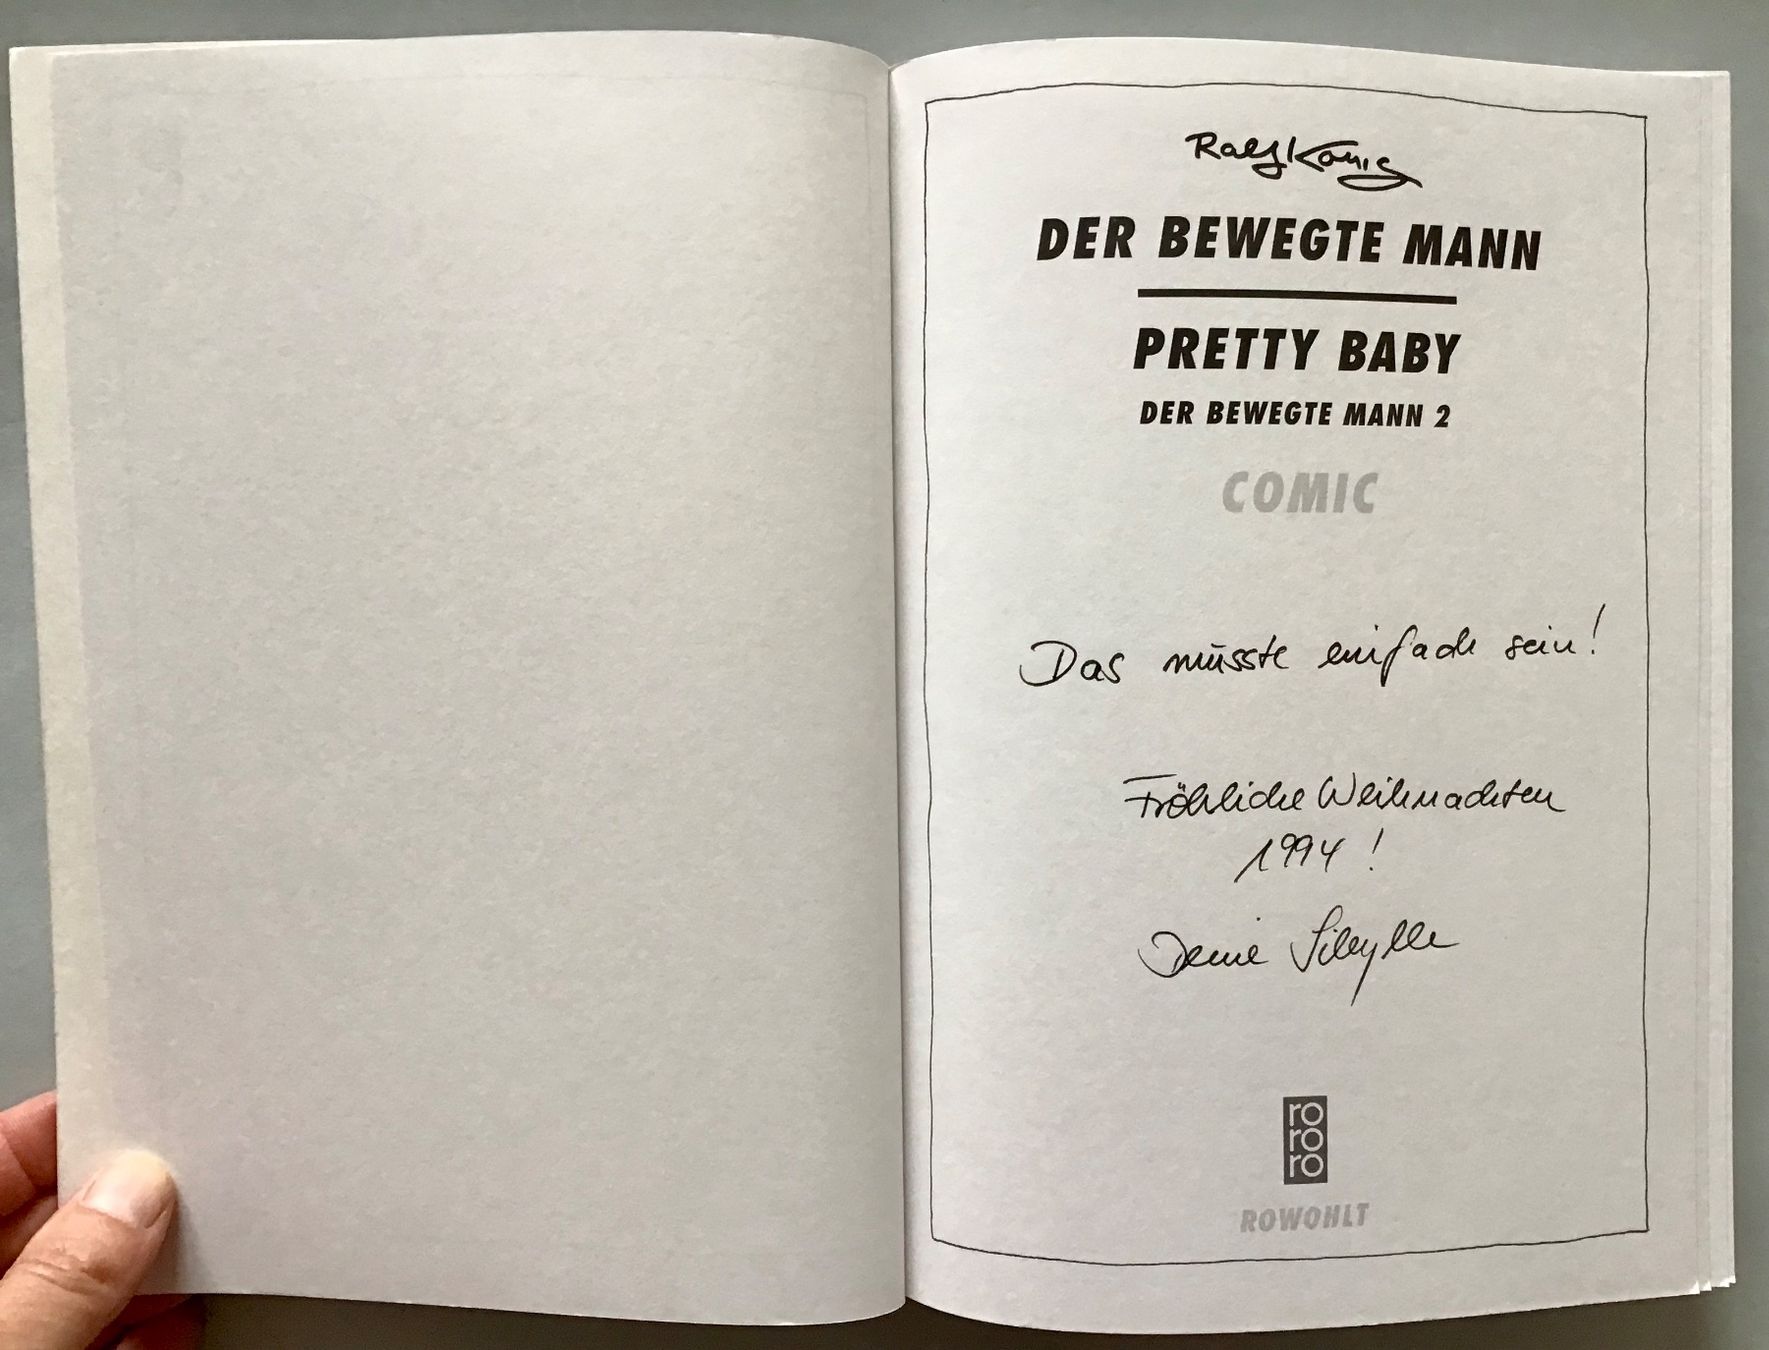 Ralf König
DER BEWEGTE MANN
PRETTY BABY
DER BEWEGTE MANN 2
COMIC
Das müsste einfach sein!
Fröhliche Weihnachten
1994!
Deine Sibylle
ro
ro
ro
ROWOHLT